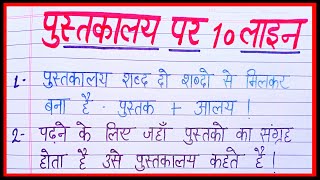 पुस्तकालय पर 10 लाइन
1- पुस्तकालय शब्द दो शब्दो से मिलकर
बना है - पुस्तक + आलय !
2- पढ़ने के लिए जहाँ पुस्तको का संग्रह
होता है उसे पुस्तकालय कहते है !